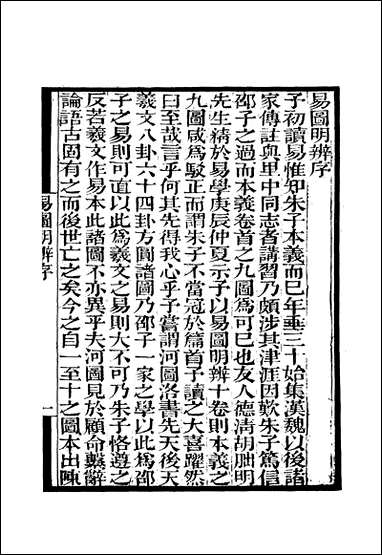 易圖明辨序
予初讀易惟知朱子本義而已年垂三十始集漢魏以後諸
家傳註與里中同志者講習乃頗涉其津涯因歎朱子篤信
邵子之過而本義卷首之九圖為可已也友人德清胡朏明
先生精於易學庚辰仲夏示予以易圖明辨十卷則本義之
九圖咸為駁正而謂朱子不當冠於篇首予讀之大喜躍然
曰至哉言乎何其先得我心乎予嘗謂河圖洛書先天後天
羲文八卦六十四卦方圓諸圖乃邵子一家之學以此為邵
子之易則可直以此為羲文之易則大不可乃朱子恪遵之
反若羲文作易本此諸圖不亦異乎夫河圖見於顧命繫辭
論語古固有之而後世亡之矣今之自一至十之圖本出陳
易圖明辨序
一